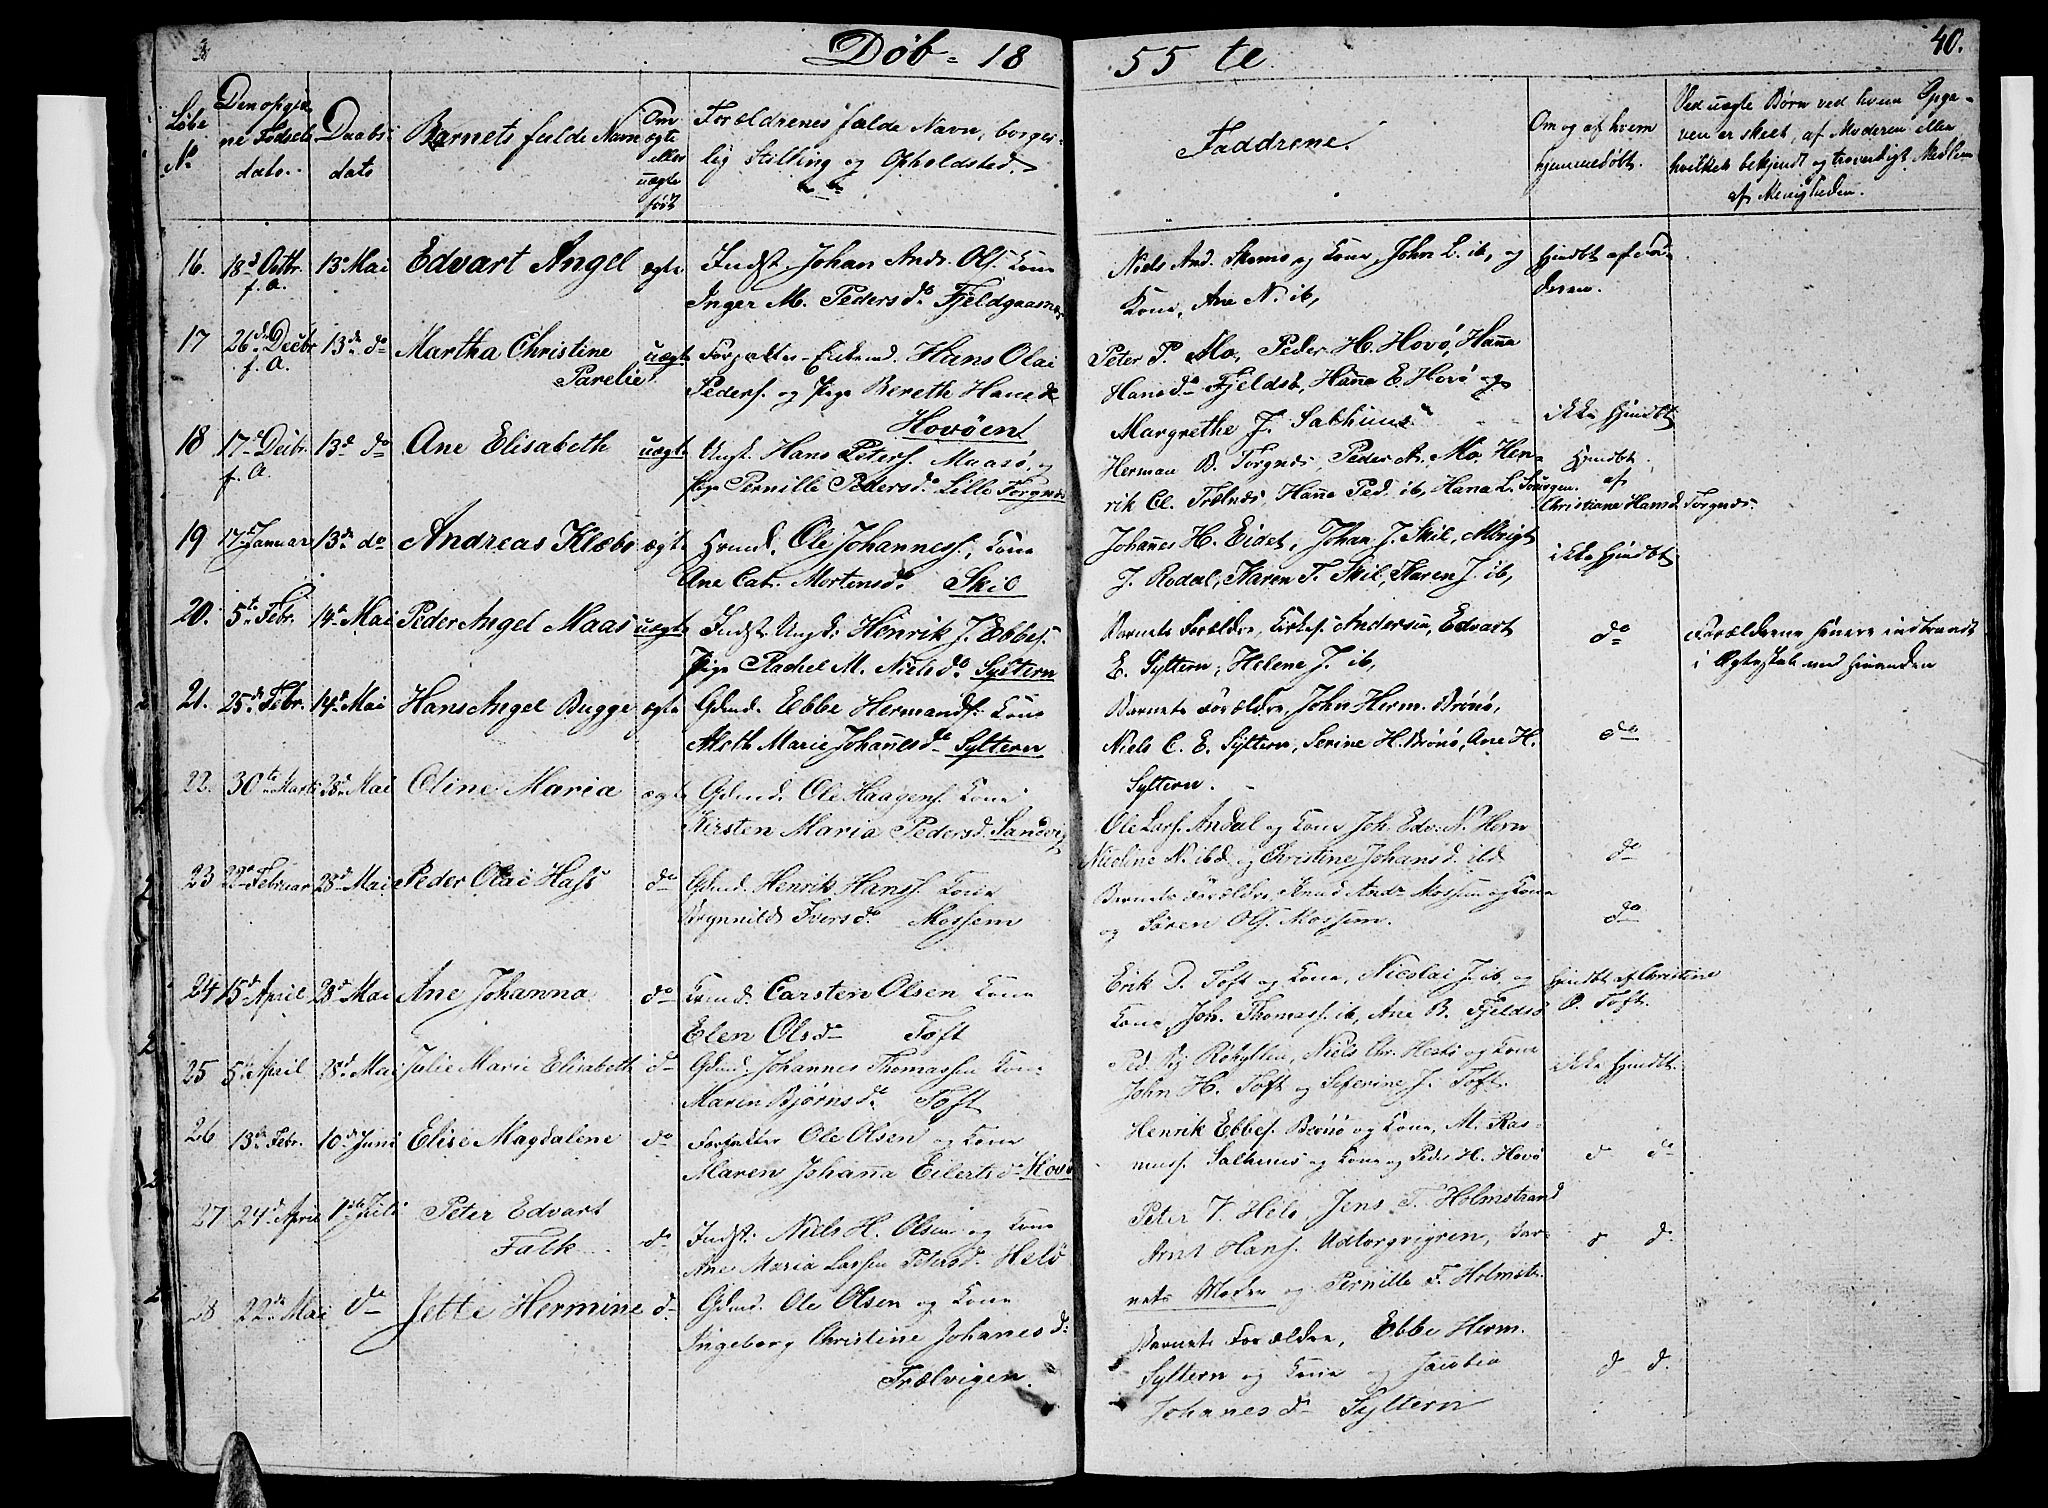 Døb - 1855 te
40.
Løbe No
Den opgivne Fødselsdato.
Daabsdato
Barnets fulde Navn
Om ægte eller uægte født
Forældrenes fulde Navn, borgerlig Stilling og Opholdsted.
Faddrene.
Om og af hvem hjemmedøbt.
Ved uægte Børn ved hvem Opgaven er skeet, af Moderen eller hvilket bekjendt og troværdigt Medlem af Menigheden.
16. 18d Octbr. f. A. 13 Mai Edvart Angel ægte Indst. Johan Andr. Ols. Kone
Inger M. Pedersdr.
Niels And. og Kone, John L. ib, og
Kone, Ane N. ib,
hjmdbt af Faderen.
17 26de Decbr f. A. 13de do Martha Christine
Parelie
uægte Forpagter Enkemd. Hans Olai
Peders. og Pige Berethe Hansdr
Hovøen
Peter P. Mo, Peder H. Hovø, Hanna
Hansdr Fjeldsø, Hanna E. Hovø og
Margrethe J.
ikke hjmdbt
18 17de Decbr. f. A. 13de do Ane Elisabeth uægte Ungk. Hans Peters. Maasø, og
Pige Pernille Pedersdr. Lille Torgnes
Herman B. Torgnes, Peder A. Mo, Hen-
rik Cl. Trælnes, Hanna Ped. ib, Hana L.
hjmdbt af Christiane Hansd. Torgnes.
19 17de Januar 13de do Andreas Klæbo ægte Ole Johanness., Kone
Ane Cat. Mortensdr. Skil
Johannes H. Eidet, Johan J. Skil, Albrigt
J. Rodal, Karen T. Skil, Karen J. ib,
ikke hjmdbt
20. 5te Febr. 14de Mai Peder Angel Maas uægte Indst. Ungk. Henrik J. Ebbes.
Pige Rachel M. Nielsdr. Syltern
Barnets Forældre, Kirkes. Andersen, Edvart
E. Syltern, Helene J. ib,
do
Forældrene senere indtraadt
i Ægteskab med hinanden
21. 25de Febr. 14de Mai Hans Angel Bugge ægte Gdmd. Ebbe Hermands. Kone
Aleth Marie Johannesdr Syltern
Barnets Forældre, John Herm. Brønø,
Niels C. E. Syltern, Serine H. Brønø, Ane H.
Syltern.
do
22. 30te Marti 28de Mai Oline Maria ægte Gdmd. Ole Haagens. Kone
Kirsten Maria Pedersd. Sandvig
Ole Lars. Andal og Kone, Joh. Edv. N. Horn
Nicoline N. ibd. og Christine Johansd. ibd
do
23 22de Februar 28de Mai Peder Olai Hass do Gdmd. Henrik Hanss. Kone
Brynnild Iversdr. Mossem
Barnets Forældre, Knud Andr. Mossem og Kone
og Søren Ols. Mossem.
do
24 15de April 28de Mai Ane Johanna do Carsten Olsen Kone
Elen Olsdr Toft
Erik D. Toft og Kone, Nicolai J. ib og
Kone, Joh. Thomass. ib, Ane B. Fjeldsø
hjmdbt af Christine
O. Toft.
25 5te April 28de Mai Julie Marie Elisabeth do Gdmd. Johannes Thomassen Kone
Maren Bjørnsdr. Toft
Ped. Niels Chr. Hestø og Kone
John H. Toft og Seferine J. Toft.
ikke hjmdbt.
26 13de Febr. 10de Juni Elise Magdalene do Forpagter Ole Olsen og Kone
Maren Johanna Eilertsdr Hovø
Henrik Ebbes. Brønø og Kone, M. Ras-
muss. og Kone og Peder H. Hovø
d do
27 24de April 1ste Juli Peter Edvart
Falk
do Indst. Niels H. Olsen og Kone
Ane Maria Lassen Petersd. Helø
Peter J. Helø, Jens T. Holmstrand
Arnt Hans. Udtorgvigren, Bar-
nets Moder og Pernille F. Holmstr.
d d.
28 22de Mai do Jette Hermine do Gdmd. Ole Olsen og Kone
Ingeborg Christine Johanesd:
Trælvigen.
Barnets Forældre, Ebbe Herm.
Syltern og Kone og Jacobia
Johanesdr Syltern
d d.